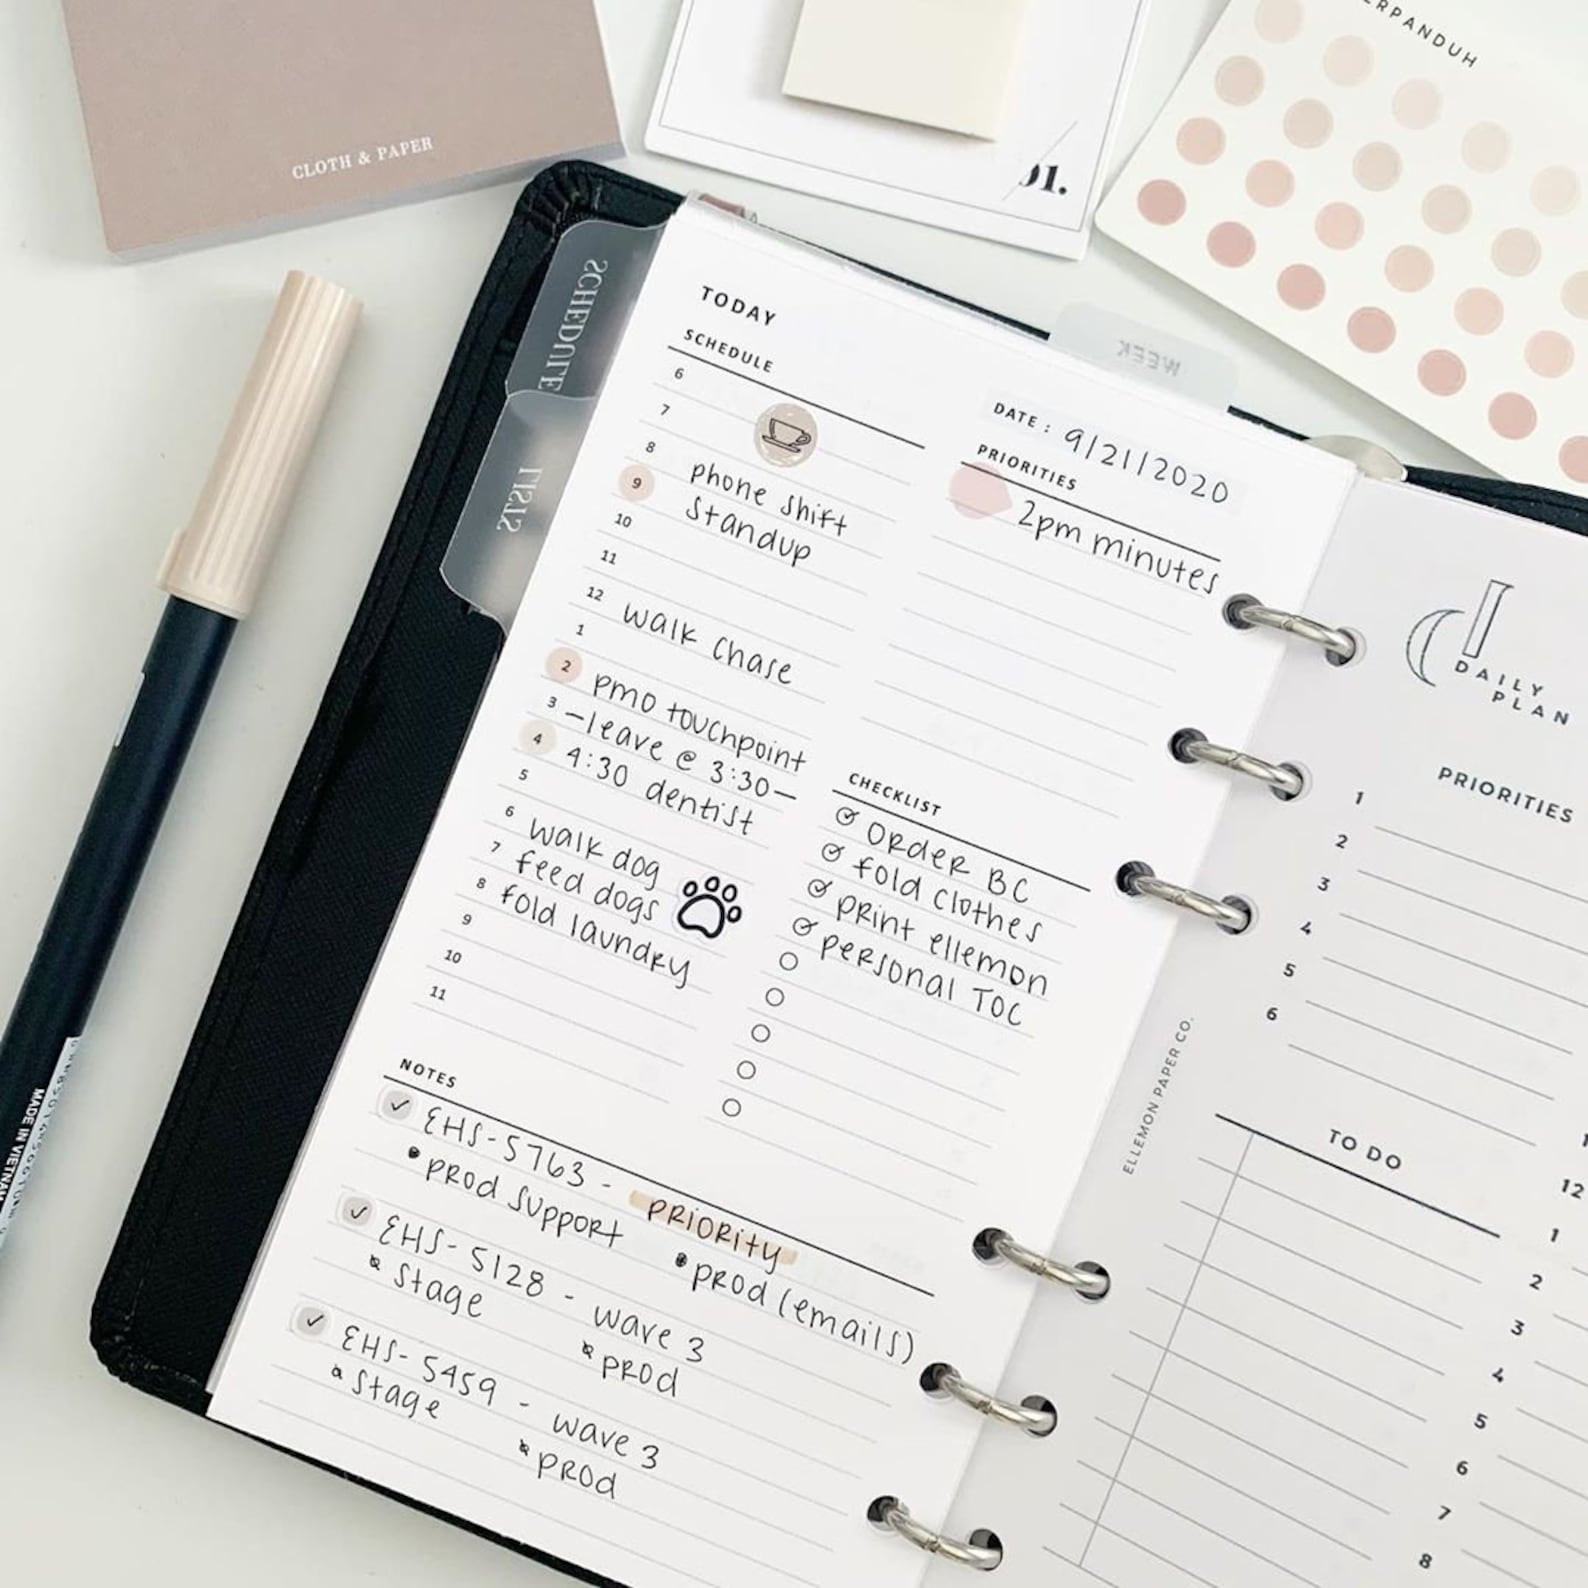 CLOTH & PAPER
01.
ERPANDUH
SCHEDULE
LISTS
WEEK
MADE IN VIETNAM
TODAY
SCHEDULE
6
7
8 phone shift
9 Standup
10
11
12 walk chase
1
2 pmo touchpoint
3 -leave @ 3:30-
4 4:30 dentist
5
6 walk dog
7 feed dogs
8 fold laundry
9
10
11
DATE: 9/21/2020
PRIORITIES
2pm minutes
CHECKLIST
Order BC
fold clothes
print ellemon
personal TOC
NOTES
EHS-5763 - PRIORITY
prod support
prod (emails)
EHS-5128 - wave 3
stage
prod
EHS-5459 - wave 3
stage
prod
ELLEMON PAPER CO.
DAILY
PLAN
PRIORITIES
1
2
3
4
5
6
TO DO
12
1
2
3
4
5
6
7
8